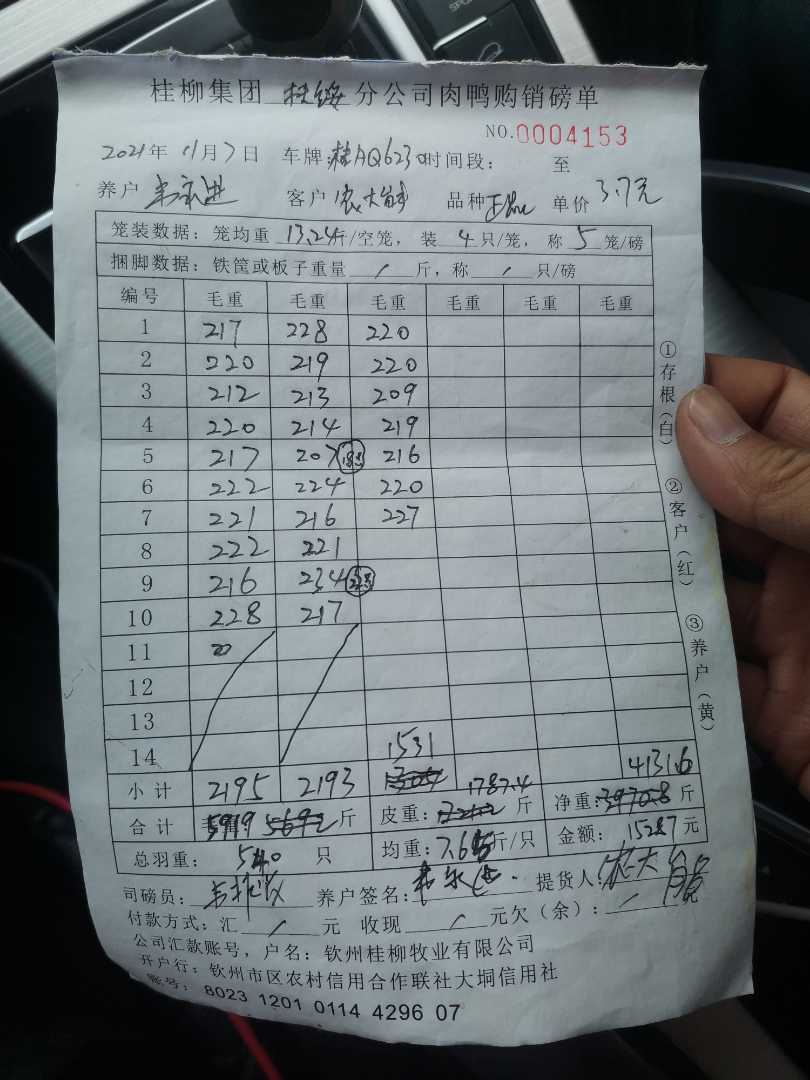 桂柳集团 扶绥 分公司肉鸭购销磅单
NO.0004153
2021年 11月7日 车牌:桂AQ6230 时间段: 至
养户 客户 农大 品种 单价 3.7元
笼装数据:笼均重 13.24斤/空笼,装 4 只/笼,称 5 笼/磅
捆脚数据:铁筐或板子重量 / 斤,称 / 只/磅
编号 毛重 毛重 毛重 毛重 毛重 毛重
1 217 228 220
2 220 219 220
3 212 213 209
4 220 214 219
5 217 207 216
6 222 224 220
7 221 216 227
8 222 221
9 216 234
10 228 217
11
12
13
14 1531 4131.6
小计 2195 2193 1787.4
合计 5919 斤 皮重: 斤 净重: 斤
总羽重: 540 只 均重:7.65斤/只 金额: 15287元
司磅员: 养户签名: 提货人:农大
付款方式:汇 / 元 收现 / 元欠(余): /
公司汇款账号,户名:钦州桂柳牧业有限公司
开户行:钦州市区农村信用合作联社大垌信用社
账号: 8023 1201 0114 4296 07
①存根(白)
②客户(红)
③养户(黄)